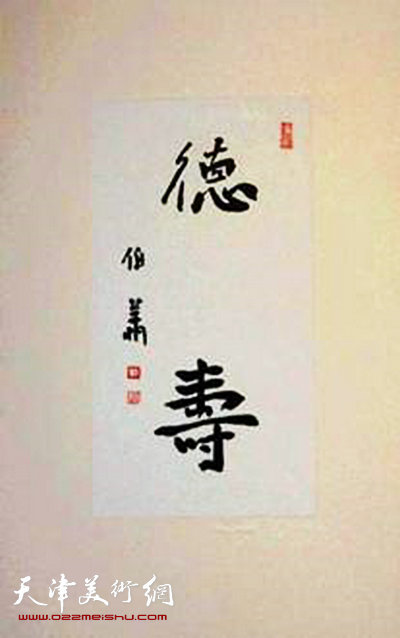 德
壽
伯
蕭
天津美術網
www.022meishu.com